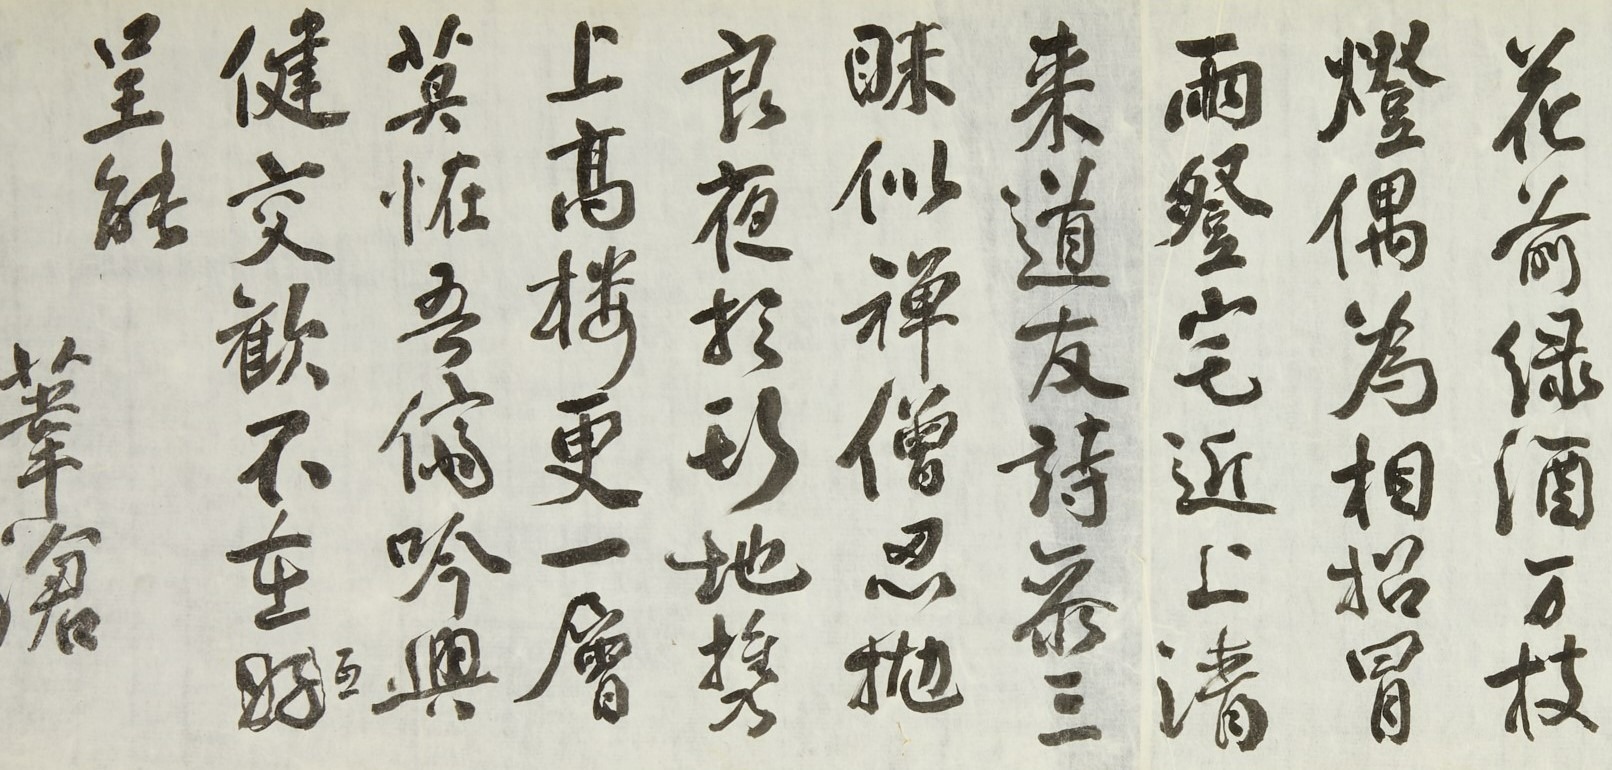 花前緑酒万枝
燈偶為相招冒
雨登宅近上清
来道友詩参三
昧似禅僧忍抛
良夜於地携
上高楼更一層
莫怪吾儕吟興
健交歡不在互
呈能
葦滄